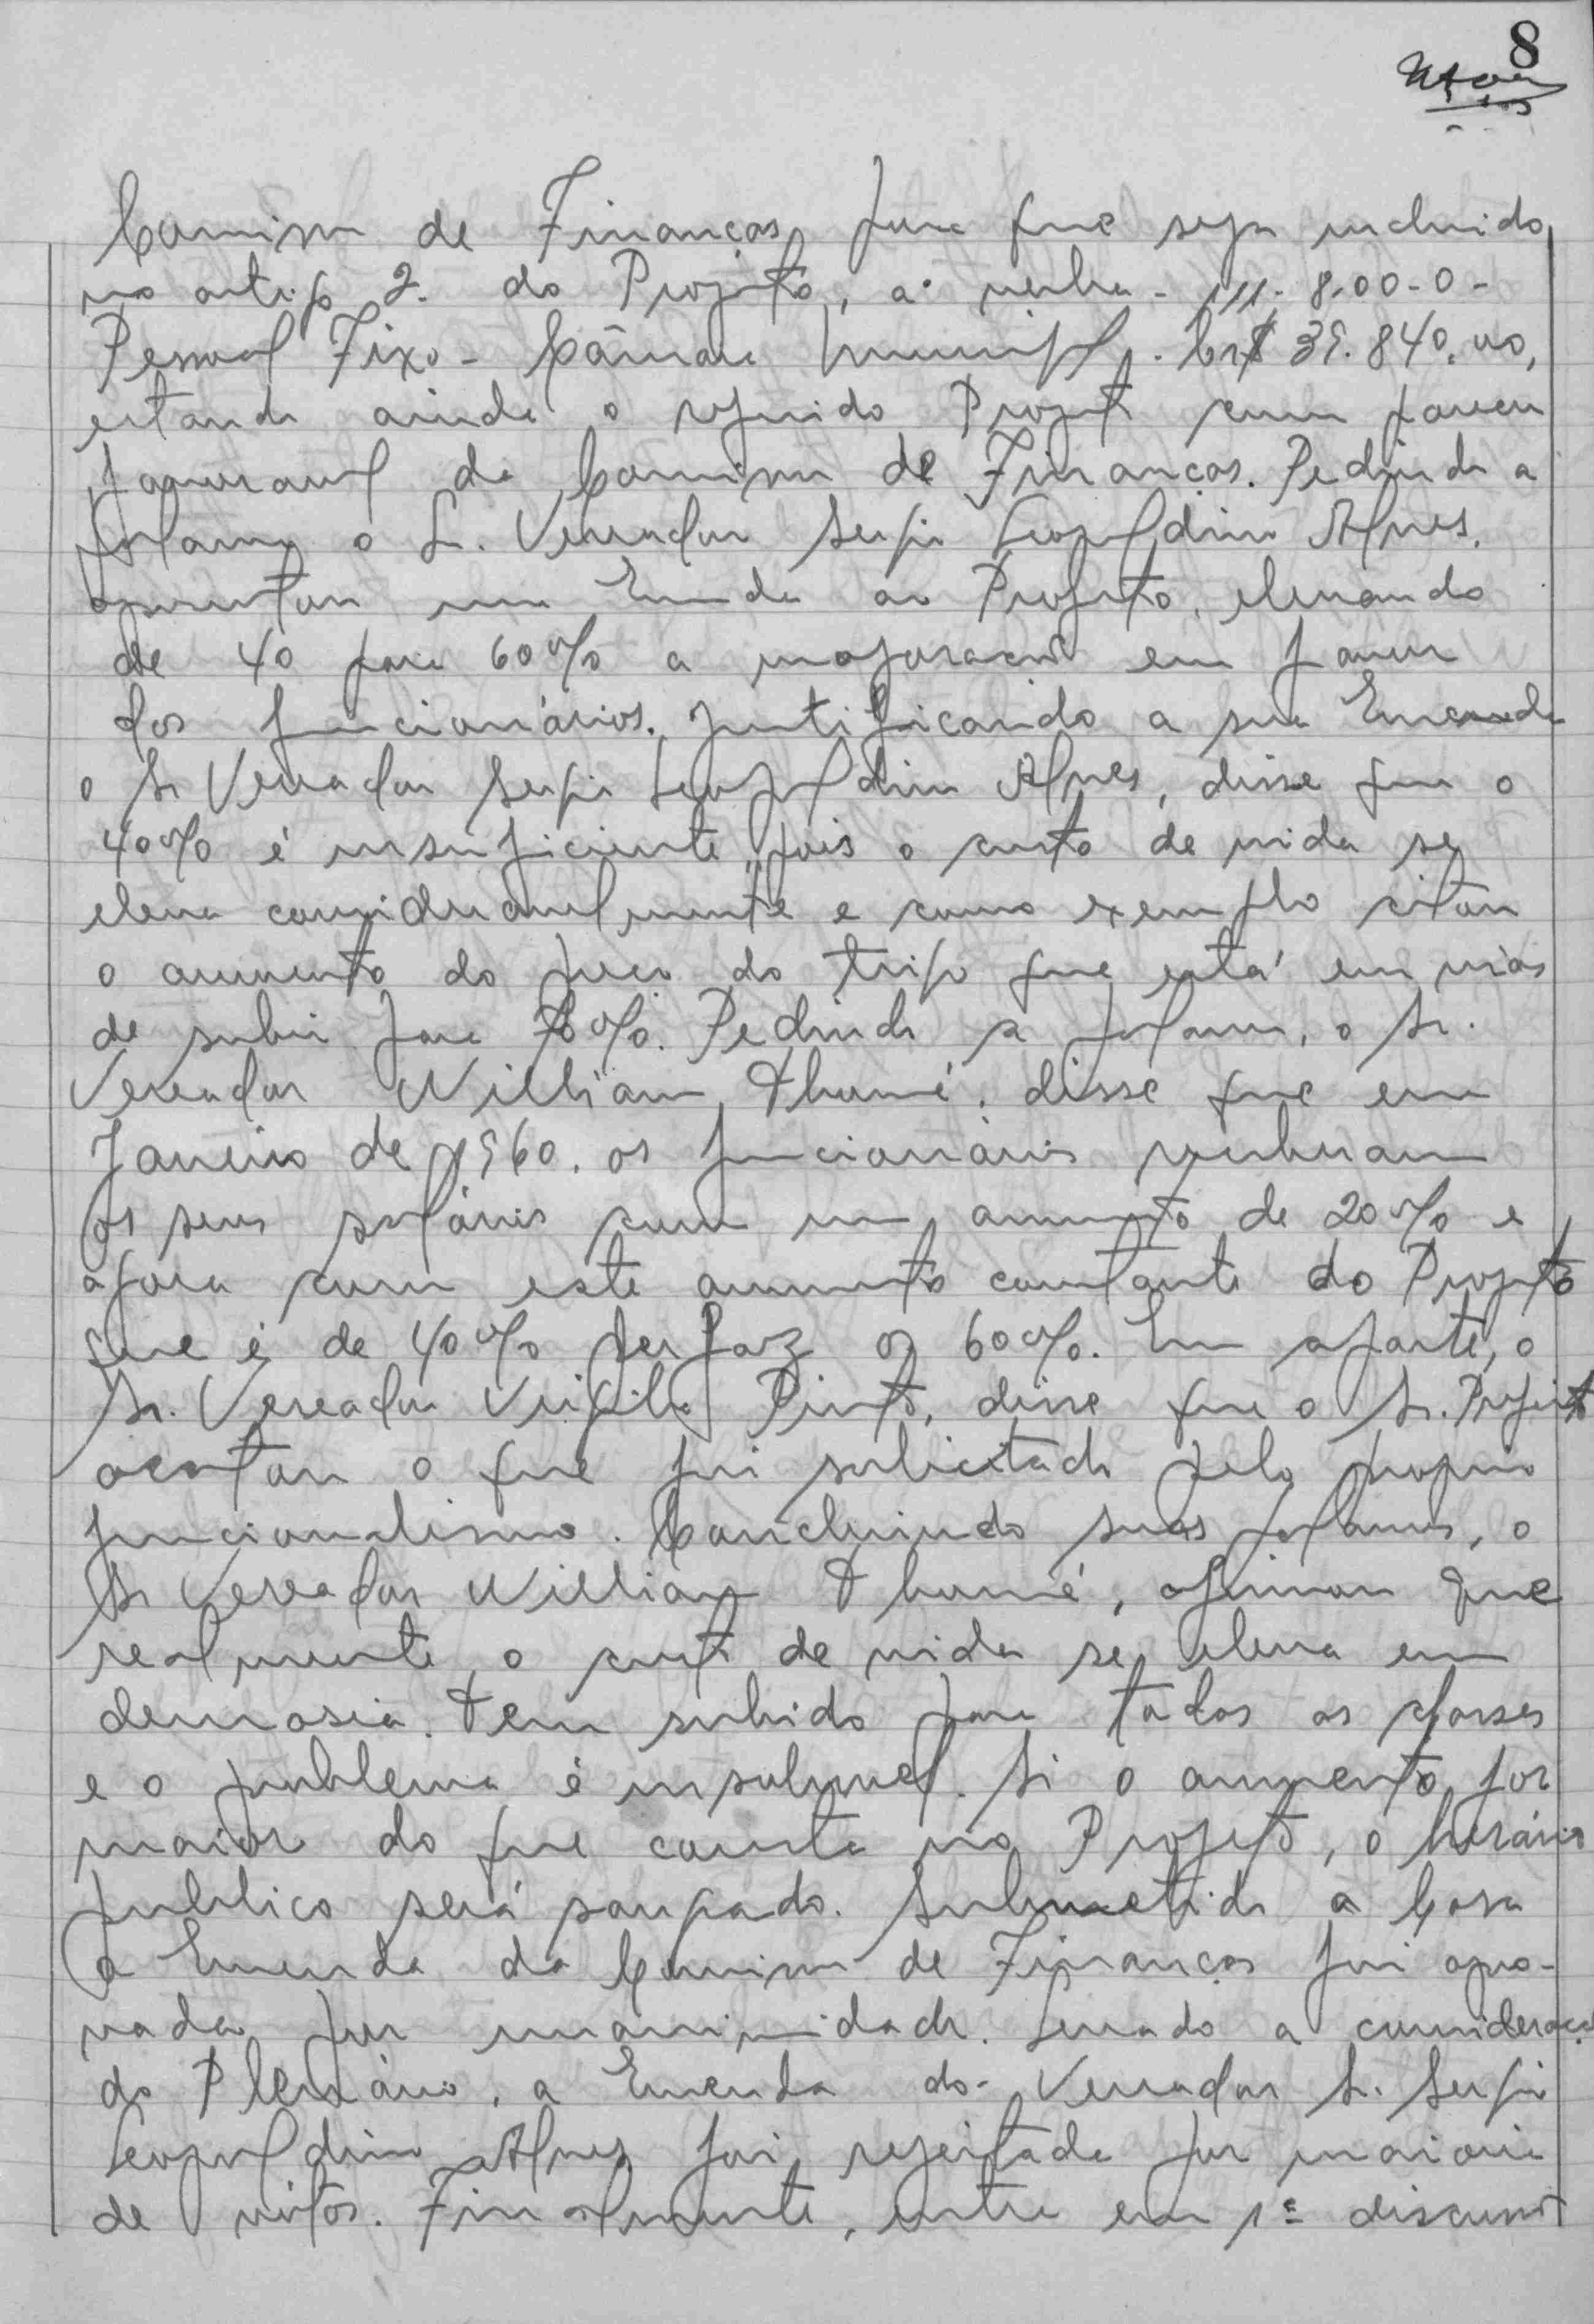 8
Comissão de Finanças, para que seja incluido
no artigo 2. do Projeto, a verba - 111. 8.00-0-
Pessoal Fixo - Câmara Municipal. Cr$ 39.840,00,
estando ainda o referido Projeto com parecer
favoravel da Comissão de Finanças. Pedindo a
palavra o Sr. Vereador Sergio Leopoldino Alves,
apresentou uma Emenda ao Projeto, elevando
de 40 para 60% a majoração em favor
dos funcionários. Justificando a sua Emenda
o Sr Vereador Sergio Leopoldino Alves, disse que o
40% é insuficiente, pois o custo de vida se
eleva consideravelmente e como exemplo citou
o aumento do preço do trigo que está em vias
de subir para 70%. Pedindo a palavra, o Sr.
Vereador William Thomé, disse que em
Janeiro de 1960. os funcionários receberam
os seus salários com um aumento de 20% e
agora com este aumento constante do Projeto
que é de 40% perfaz os 60%. Em aparte, o
Sr. Vereador Virgilio Pinto, disse que o Sr. Prefeito
acatou o que foi solicitado pelo proprio
funcionalismo. Concluindo suas palavras, o
Sr Vereador William Thomé, afirmou que
realmente, o custo de vida se eleva em
demasia. Tem subido para todas as classes
e o problema é insoluvel. Si o aumento for
maior do que consta no Projeto, o horário
publico será poupado. Submetido a Casa
a Emenda da Comissão de Finanças foi apro-
vada por unanimidade. Levado a consideração
do Plenário, a Emenda do Vereador Sr. Sergio
Leopoldino Alves foi rejeitada por maioria
de votos. Finalmente, entra em 1ª discussão